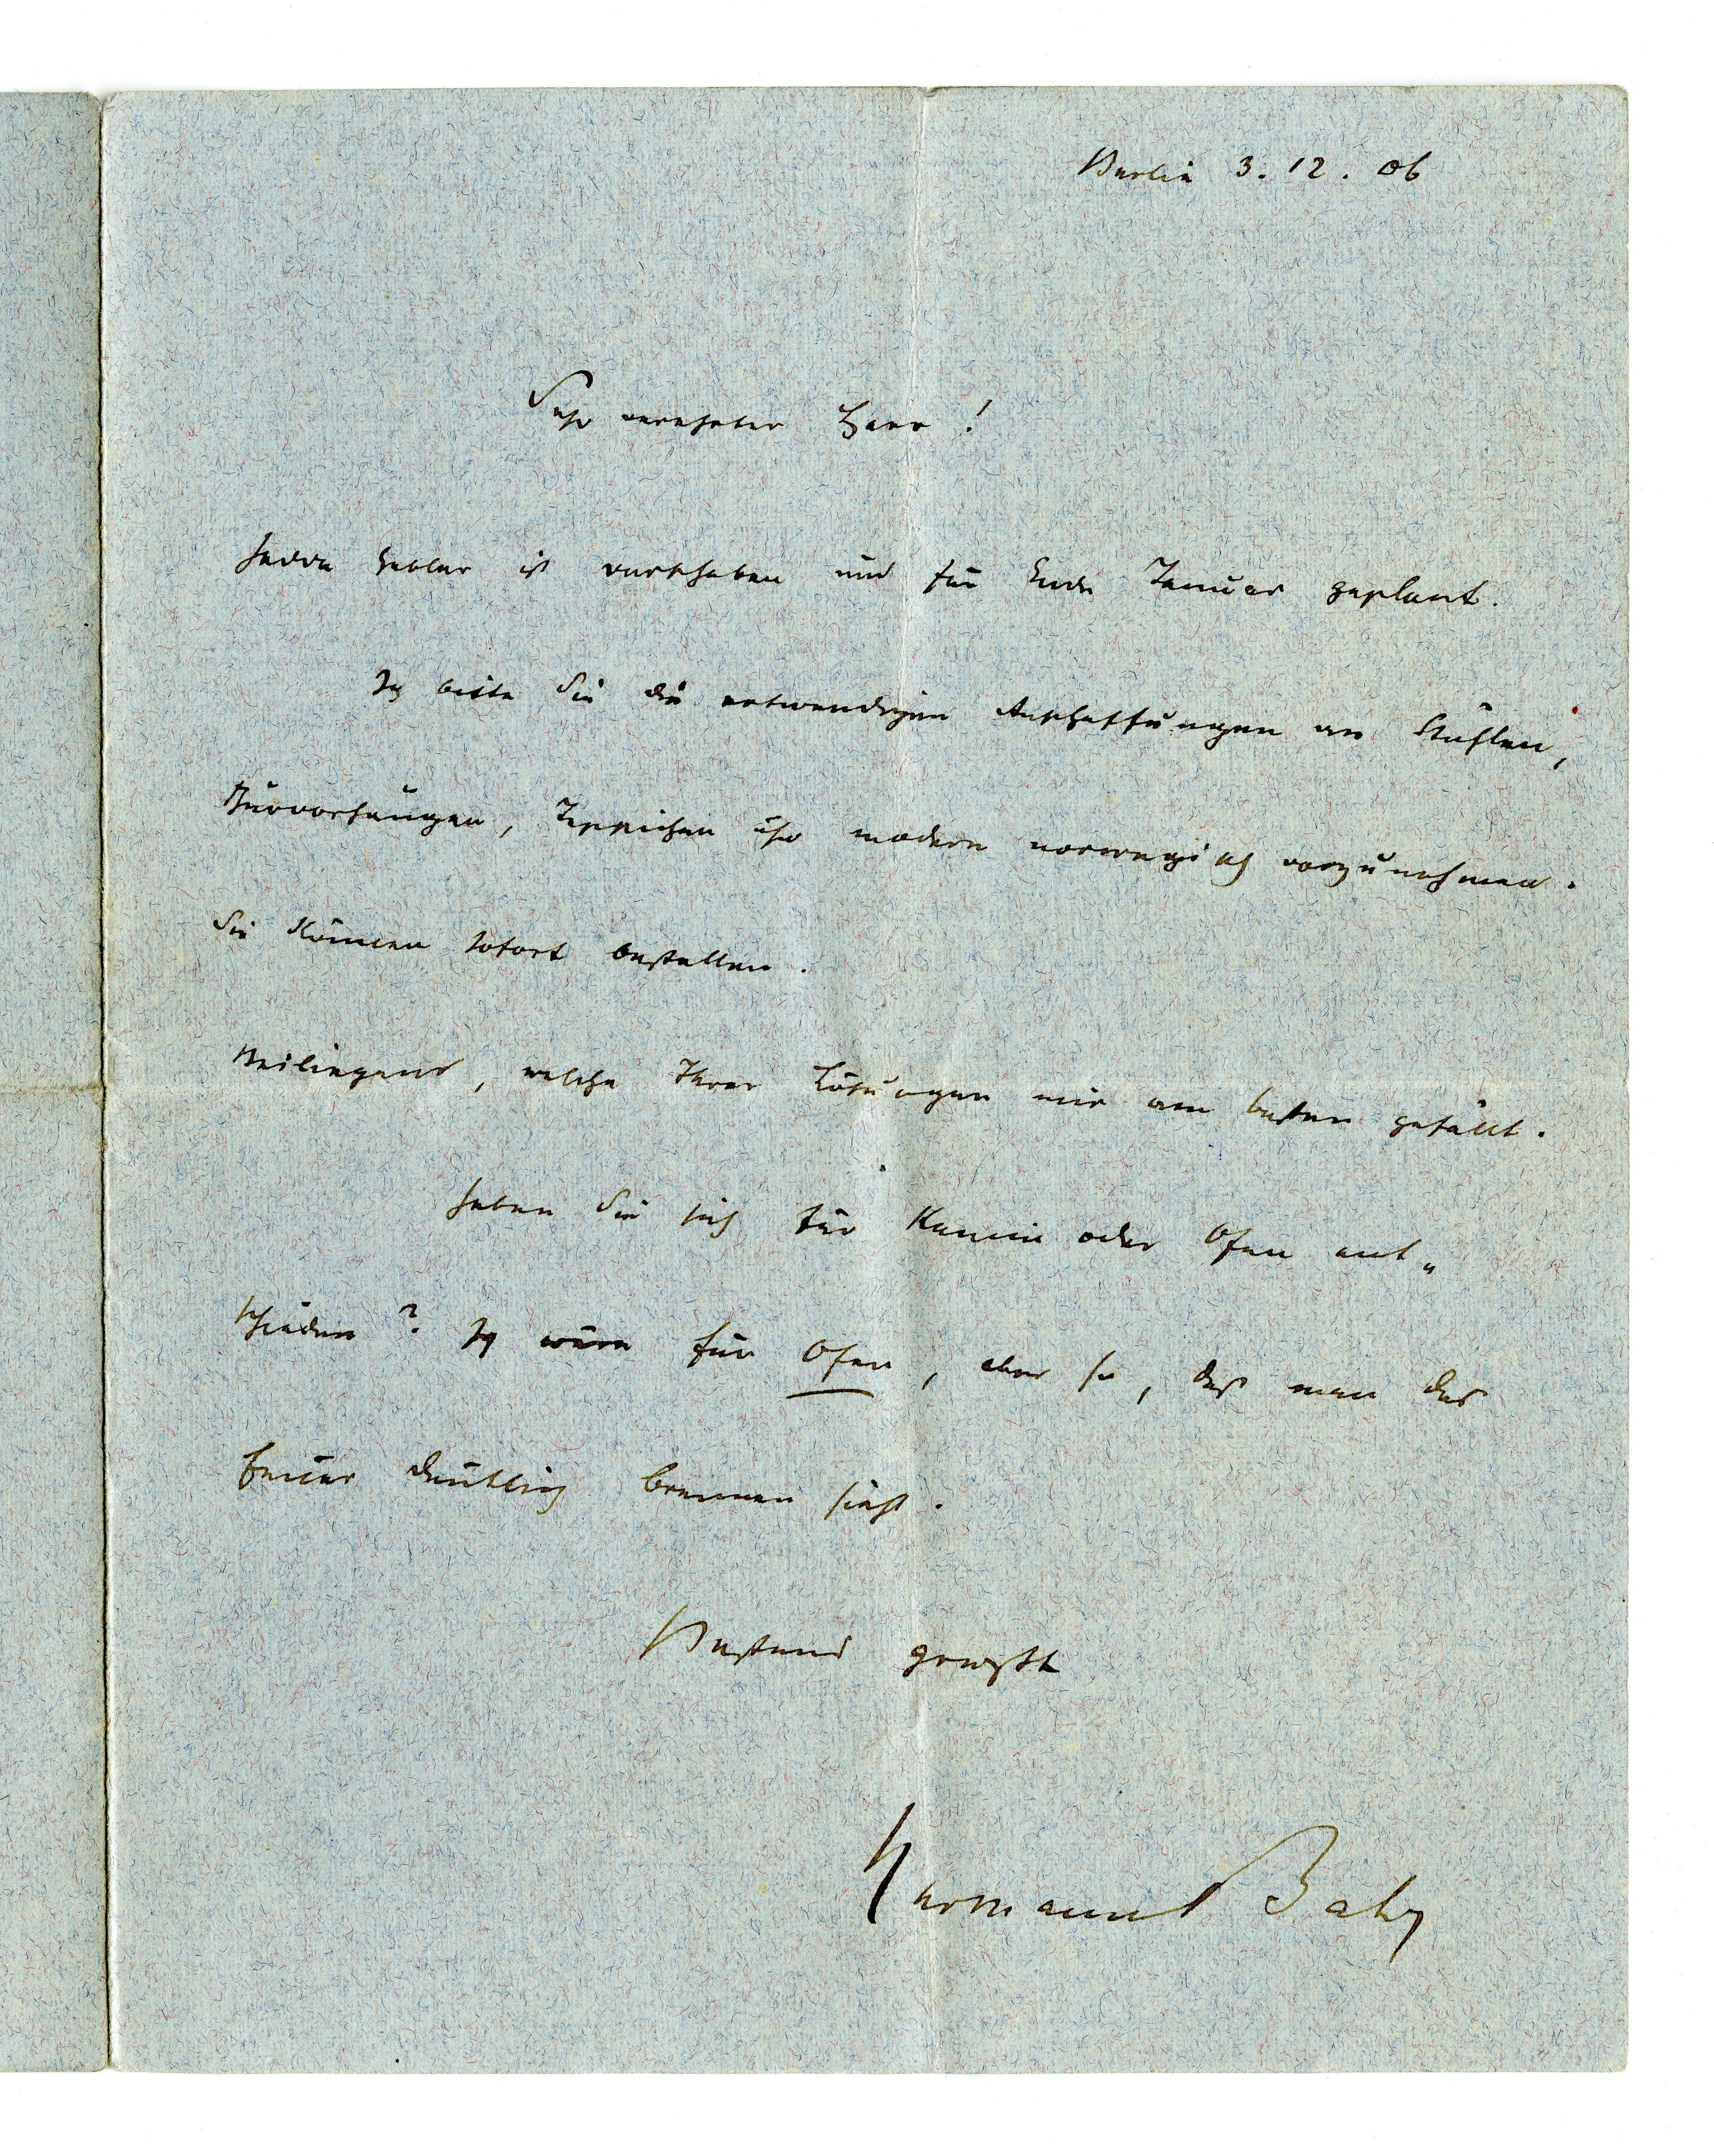 Berlin 3. 12. 06
Sehr verehrter Herr!
Hedda Gabler ist verschoben und für Ende Januar geplant.
Ich bitte Sie die notwendigen Anschaffungen an Stühlen,
Türvorhängen, Teppichen sehr modern norwegisch vorzunehmen.
Sie können sofort bestellen.
Beiliegend, welche Ihrer Lösungen mir am besten gefällt.
Haben Sie sich für Kamin oder Ofen ent„
schieden? Ich wäre für Ofen, aber so, daß man das
Feuer deutlich brennen sieht.
Bestens grüßt
Hermann Bahr